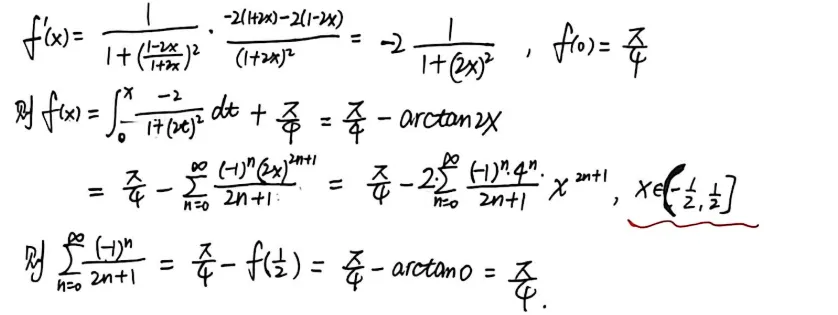 f'(x) = \frac{1}{1+(\frac{1-2x}{1+2x})^2} \cdot \frac{-2(1+2x)-2(1-2x)}{(1+2x)^2} = -2 \frac{1}{1+(2x)^2} , f(0) = \frac{\pi}{4}
则 f(x) = \int_0^x \frac{-2}{1+(2t)^2} dt + \frac{\pi}{4} = \frac{\pi}{4} - arctan2x
= \frac{\pi}{4} - \sum_{n=0}^{\infty} \frac{(-1)^n (2x)^{2n+1}}{2n+1} = \frac{\pi}{4} - 2 \cdot \sum_{n=0}^{\infty} \frac{(-1)^n \cdot 4^n \cdot}{2n+1} x^{2n+1} , x \in (-\frac{1}{2}, \frac{1}{2}]
则 \sum_{n=0}^{\infty} \frac{(-1)^n}{2n+1} = \frac{\pi}{4} - f(\frac{1}{2}) = \frac{\pi}{4} - arctan0 = \frac{\pi}{4} .